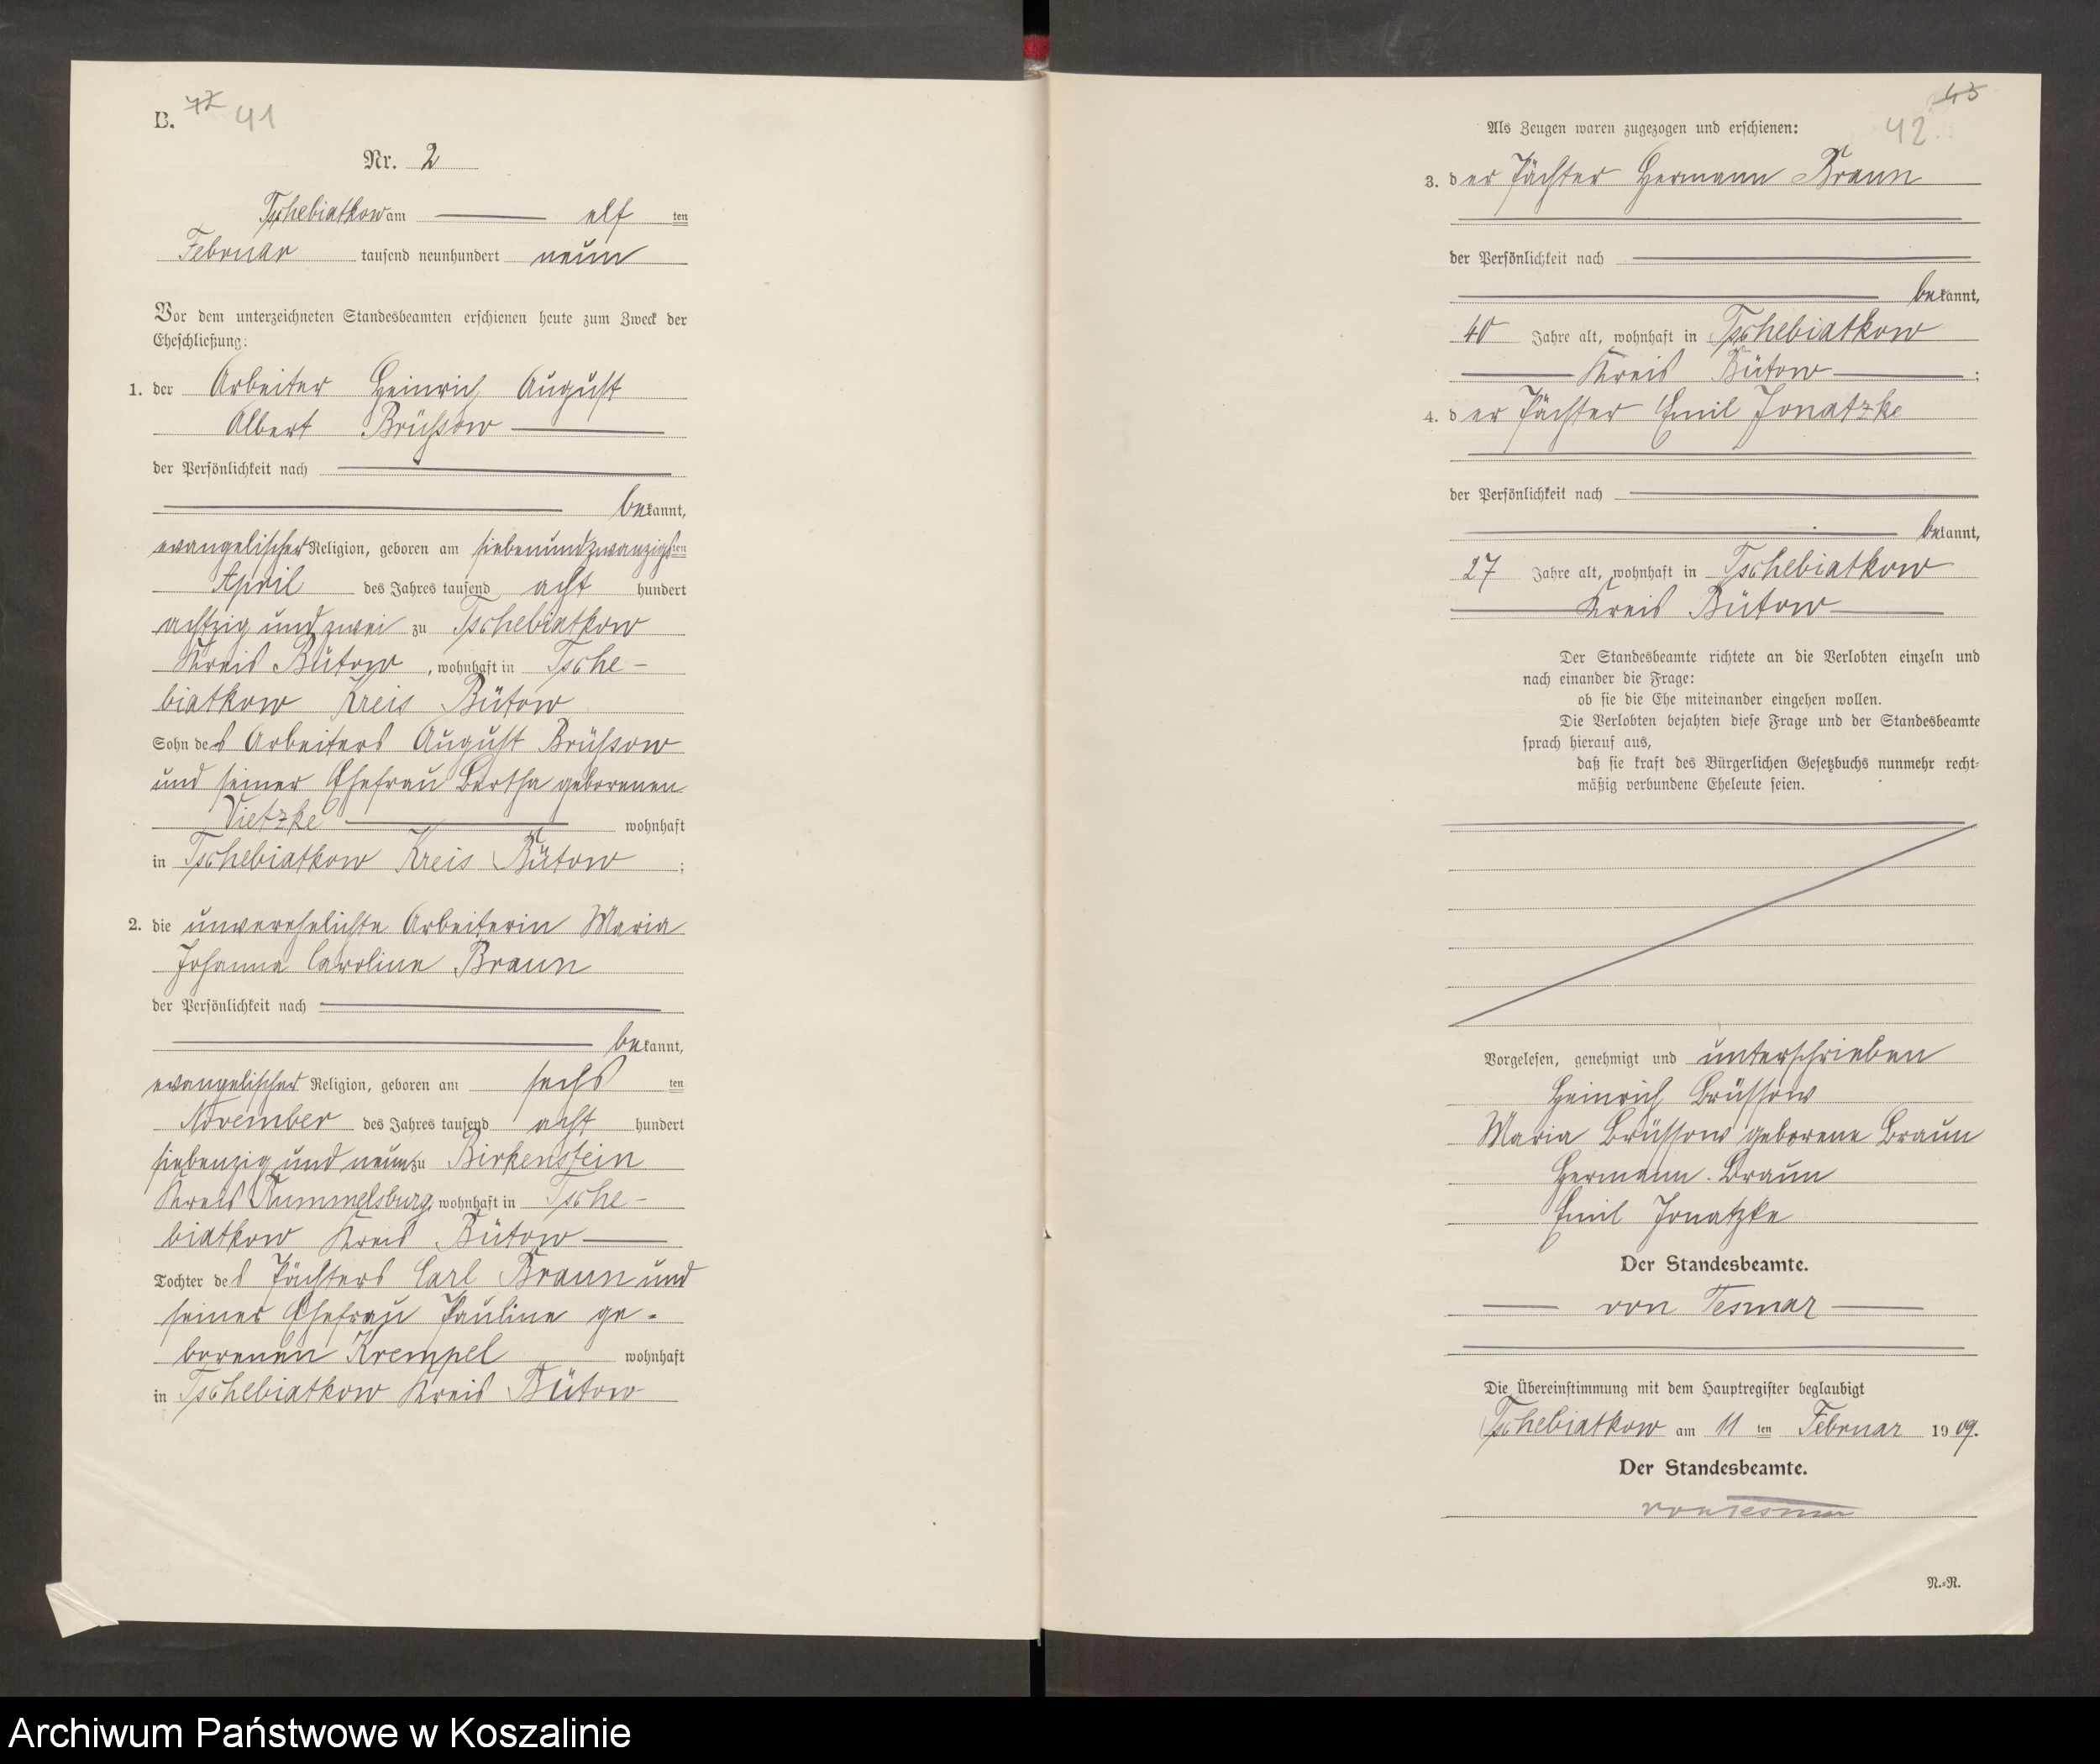 B. 42 41
Nr. 2
Tschebiatkow am elf ten
Februar tausend neunhundert neun
Vor dem unterzeichneten Standesbeamten erschienen heute zum Zweck der
Eheschließung:
1. der Arbeiter Heinrich August
Albert Brüssow
der Persönlichkeit nach
bekannt,
evangelischer Religion, geboren am siebenundzwanzigsten
April des Jahres tausend acht hundert
achtzig und zwei zu Tschebiatkow
Kreis Bütow, wohnhaft in Tsche-
biatkow Kreis Bütow
Sohn des Arbeiters August Brüssow
und seiner Ehefrau Bertha geborenen
Vietzke wohnhaft
in Tschebiatkow Kreis Bütow ;
2. die unverehelichte Arbeiterin Maria
Johanna Caroline Braun
der Persönlichkeit nach
bekannt,
evangelischer Religion, geboren am sechs ten
November des Jahres tausend acht hundert
siebenzig und neun zu Birkenstein
Kreis Rummelsburg, wohnhaft in Tsche-
biatkow Kreis Bütow
Tochter des Pächters Carl Braun und
seiner Ehefrau Pauline ge-
borenen Krempel wohnhaft
in Tschebiatkow Kreis Bütow
43
42
Als Zeugen waren zugezogen und erschienen:
3. der Pächter Hermann Braun
der Persönlichkeit nach
bekannt,
40 Jahre alt, wohnhaft in Tschebiatkow
Kreis Bütow ;
4. der Pächter Emil Jonatzke
der Persönlichkeit nach
bekannt,
27 Jahre alt, wohnhaft in Tschebiatkow
Kreis Bütow
Der Standesbeamte richtete an die Verlobten einzeln und
nach einander die Frage:
ob sie die Ehe miteinander eingehen wollen.
Die Verlobten bejahten diese Frage und der Standesbeamte
sprach hierauf aus,
daß sie kraft des Bürgerlichen Gesetzbuchs nunmehr recht-
mäßig verbundene Eheleute seien.
Vorgelesen, genehmigt und unterschrieben
Heinrich Brüssow
Maria Brüssow geborene Braun
Hermann Braun
Emil Jonatzke
Der Standesbeamte.
von Tesmar
Die Übereinstimmung mit dem Hauptregister beglaubigt
Tschebiatkow am 11 ten Februar 1909.
Der Standesbeamte.
von Tesmar
N.-R.
Archiwum Państwowe w Koszalinie